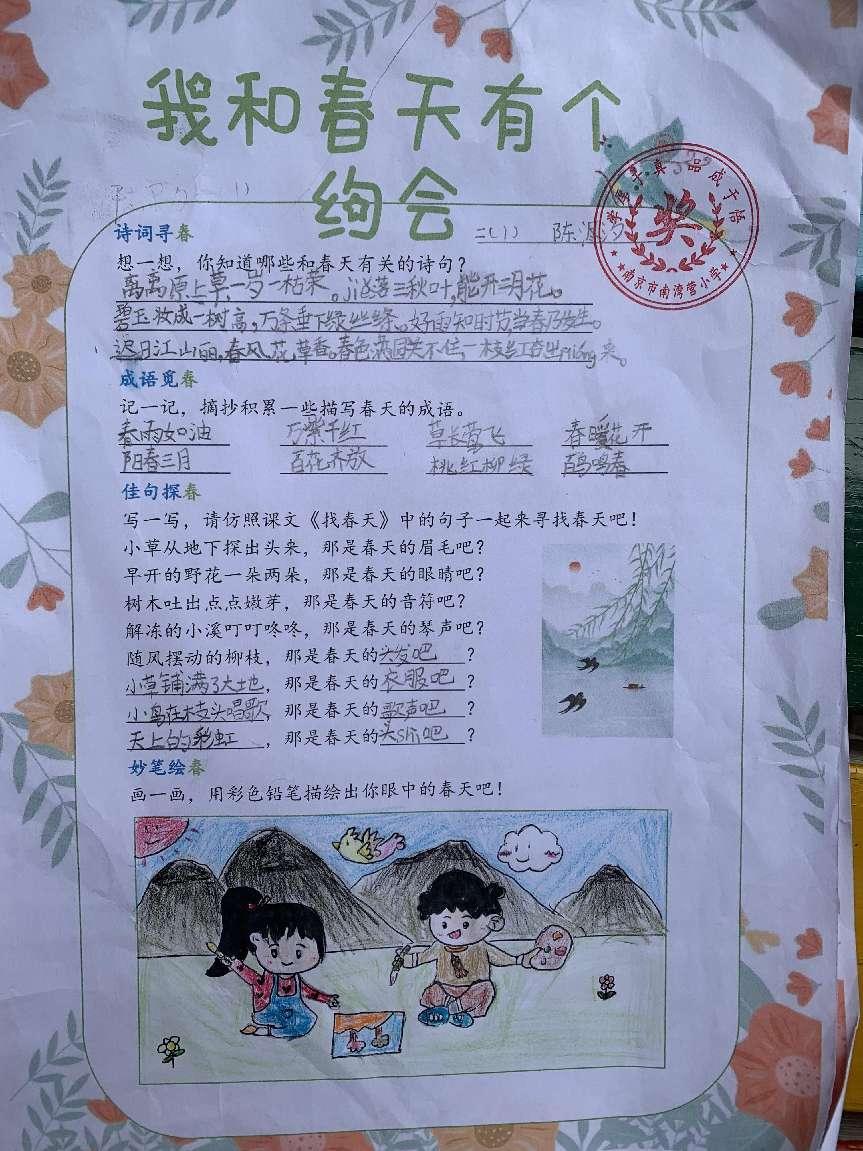 我和春天有个
约会
二（1） 陈浥汐
学习求真 品成于悟
奖
南京市南湾营小学
诗词寻春
想一想，你知道哪些和春天有关的诗句？
离离原上草，一岁一枯荣。jiě落三秋叶，能开二月花。
碧玉妆成一树高，万条垂下绿丝绦。好雨知时节，当春乃发生。
迟日江山丽，春风花草香。春色满园关不住，一枝红杏出qiáng来。
成语觅春
记一记，摘抄积累一些描写春天的成语。
春雨如油 万紫千红 草长莺飞 春暖花开
阳春三月 百花齐放 桃红柳绿 百鸟鸣春
佳句探春
写一写，请仿照课文《找春天》中的句子一起来寻找春天吧！
小草从地下探出头来，那是春天的眉毛吧？
早开的野花一朵两朵，那是春天的眼睛吧？
树木吐出点点嫩芽，那是春天的音符吧？
解冻的小溪叮叮咚咚，那是春天的琴声吧？
随风摆动的柳枝，那是春天的头发吧？
小草铺满了大地，那是春天的衣服吧？
小鸟在枝头唱歌，那是春天的歌声吧？
天上的彩虹，那是春天的头shì吧？
妙笔绘春
画一画，用彩色铅笔描绘出你眼中的春天吧！